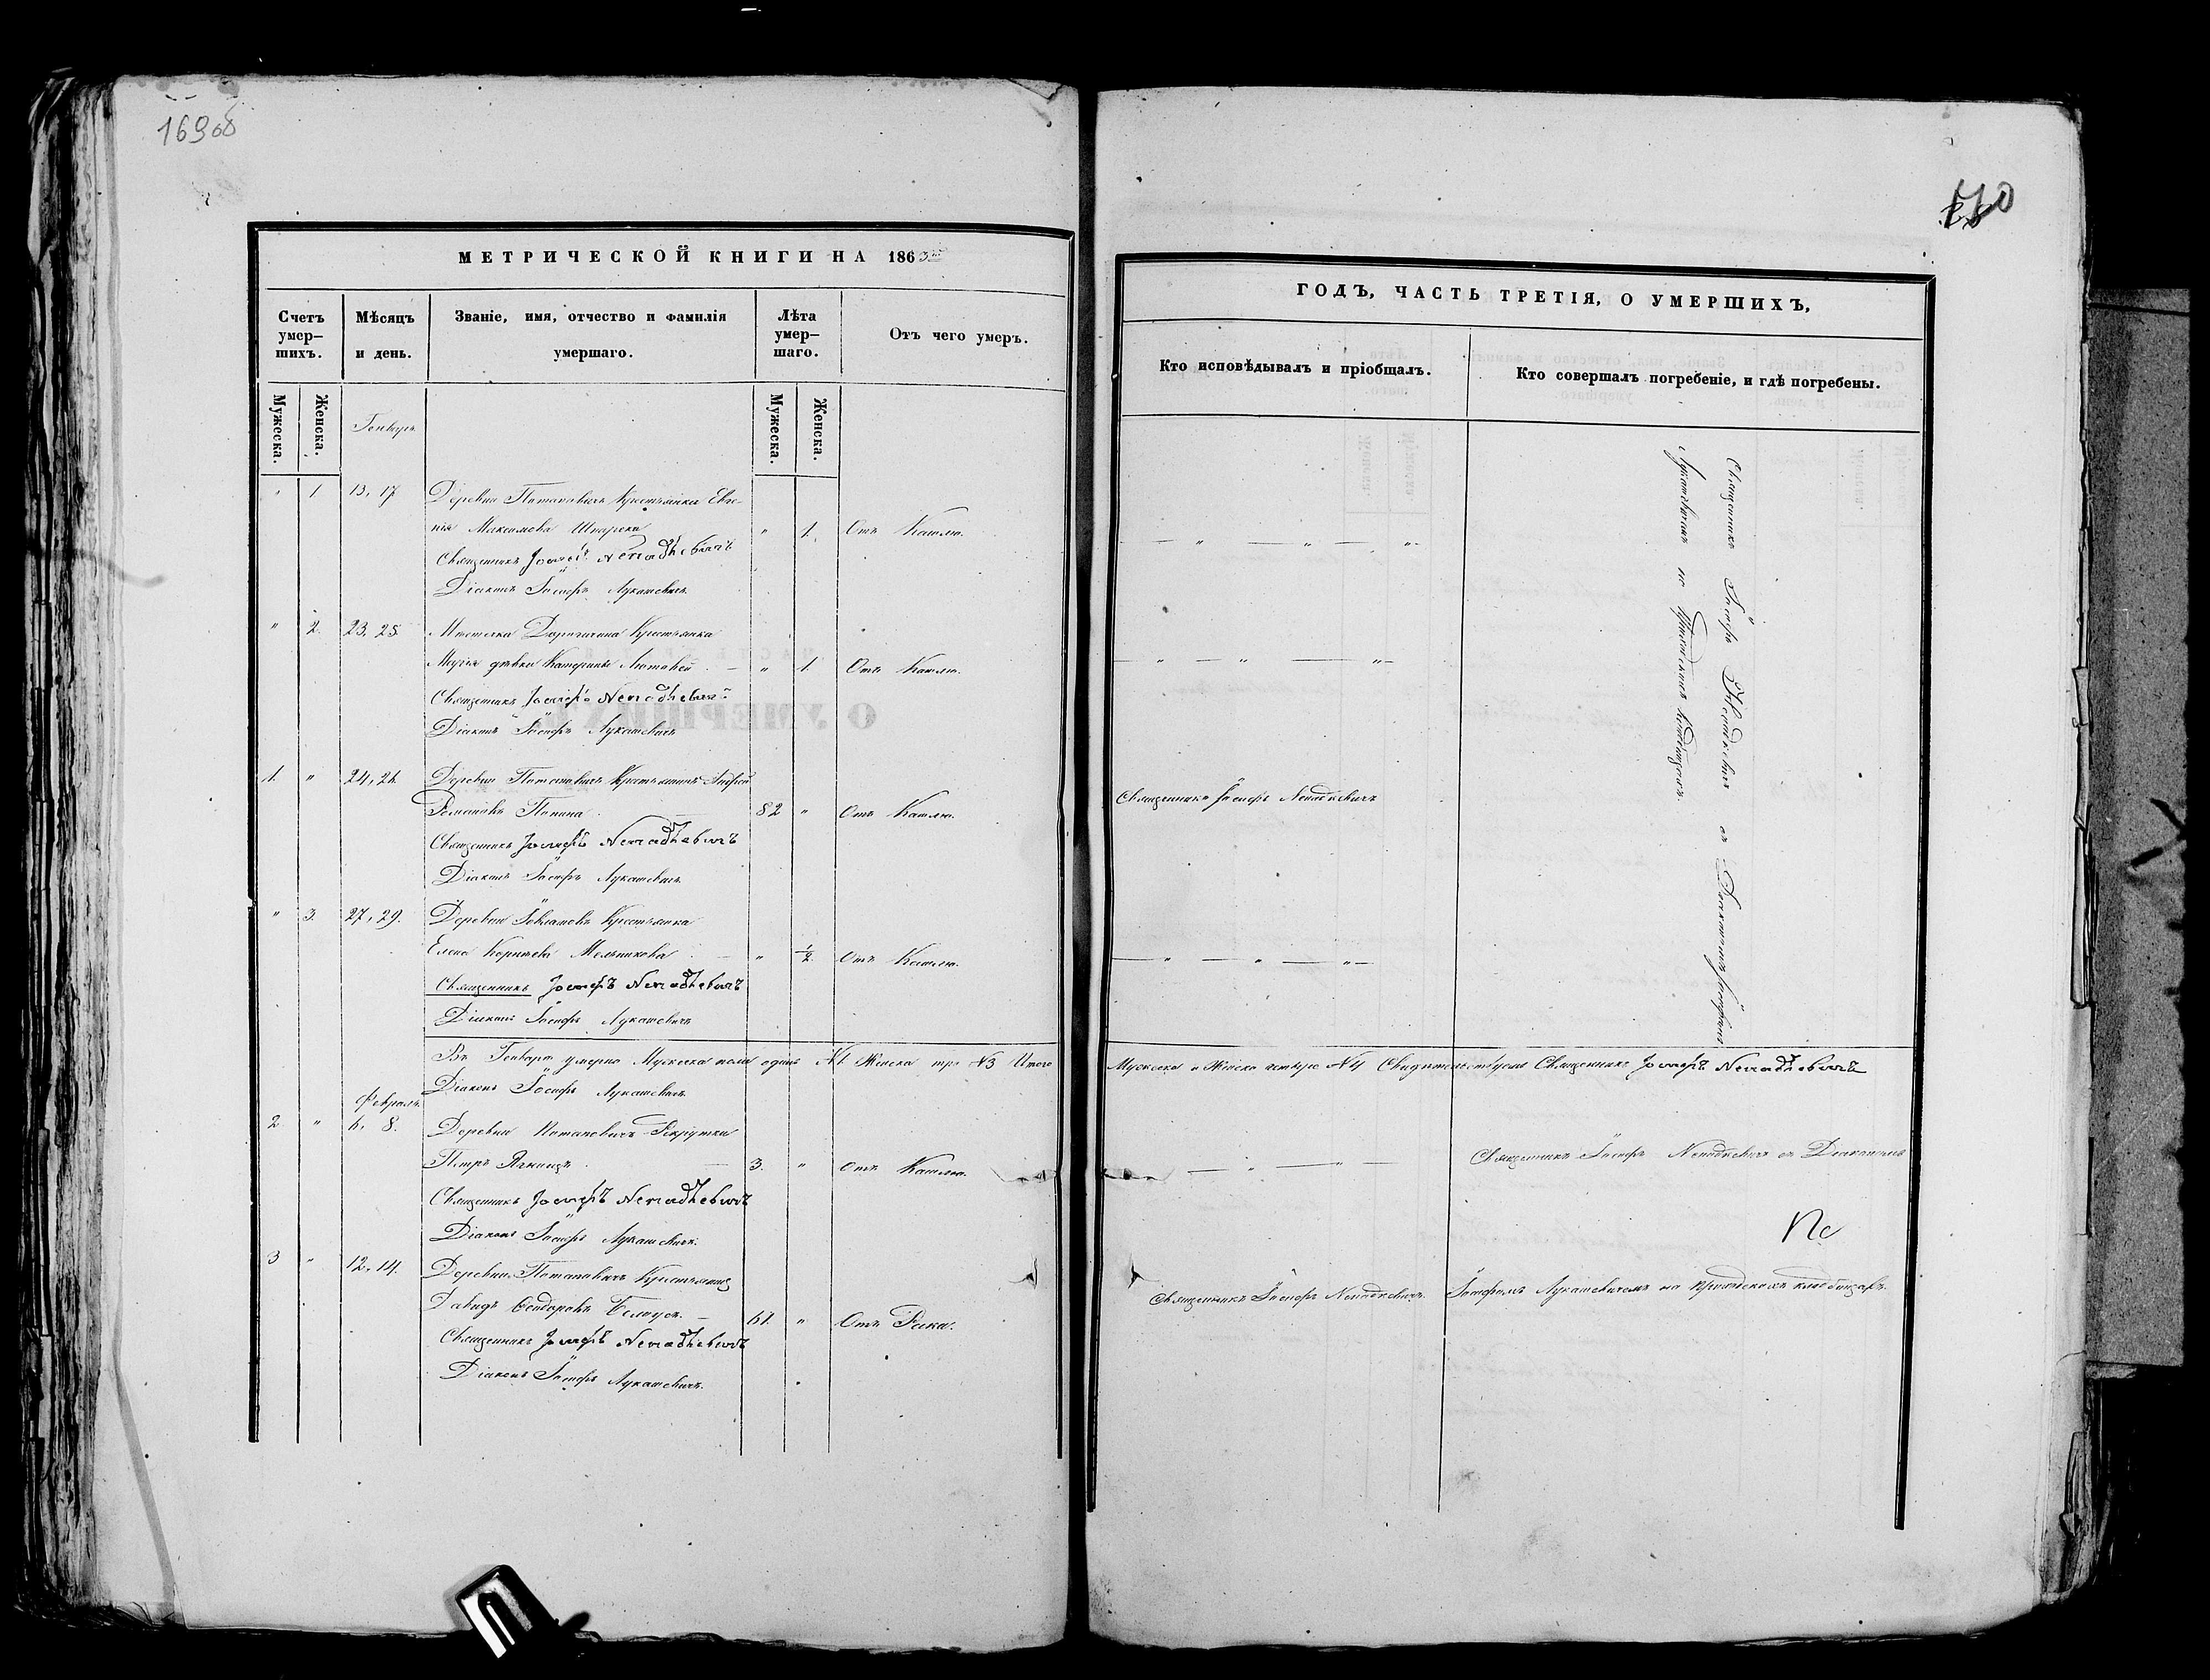 169об
170
МЕТРИЧЕСКОЙ КНИГИ НА 1863
Счетъ умер-шихъ.
Мѣсяцъ и день.
Званіе, имя, отчество и фамилія умершаго.
Лѣта умер-шаго.
Отъ чего умеръ.
Мужеска.
Женска.
Мужеска.
Женска.
Генварь
" 1 13, 17 Деревни Потаповичъ Крестьянка Евге-
нія Максимова " 1. Отъ Кашлю.
Священникъ Іосифъ Ненадкевичъ
Діаконъ Іосифъ Лукашевичъ
" 2. 23, 25 Мѣстечка Крестьянка
Марія дѣвки Катерины " 1 Отъ Кашлю.
Священникъ Іосифъ Ненадкевичъ
Діаконъ Іосифъ Лукашевичъ
1. " 24, 26. Деревни Потаповичъ Крестьянинъ Андрей
Романовъ 82 " Отъ Кашлю.
Священникъ Іосифъ Ненадкевичъ
Діаконъ Іосифъ Лукашевичъ
" 3. 27, 29. Деревни Крестьянка
Елена Мельникова " 1/2 Отъ Кашлю.
Священникъ Іосифъ Ненадкевичъ
Діаконъ Іосифъ Лукашевичъ
Въ Генварѣ умерло Мужеска пола одинъ №1 Женска три №3 Итого
Діаконъ Іосифъ Лукашевичъ
Февраль
2 " 6, 8. Деревни Потаповичъ Рекрутки
Петръ 3. " Отъ Кашлю.
Священникъ Іосифъ Ненадкевичъ
Діаконъ Іосифъ Лукашевичъ.
3 " 12, 14. Деревни Потаповичъ Крестьянинъ
Давидъ Ѳеодоровъ 61. " Отъ Рака.
Священникъ Іосифъ Ненадкевичъ
Діаконъ Іосифъ Лукашевичъ.
ГОДЪ, ЧАСТЬ ТРЕТІЯ, О УМЕРШИХЪ,
Кто исповѣдывалъ и пріобщалъ.
Кто совершалъ погребеніе, и гдѣ погребены.
Священникъ Іосифъ Ненадкевичъ съ Діакономъ Іосифомъ
Лукашевичемъ на Приходскихъ Кладбищахъ.
Священникъ Іосифъ Ненадкевичъ
Мужеска и Женска четыре №4 Свидѣтельствуемъ Священникъ Іосифъ Ненадкевичъ
Священникъ Іосифъ Ненадкевичъ съ Діакономъ
Священникъ Іосифъ Ненадкевичъ.
Іосифомъ Лукашевичемъ на Приходскихъ кладбищахъ.